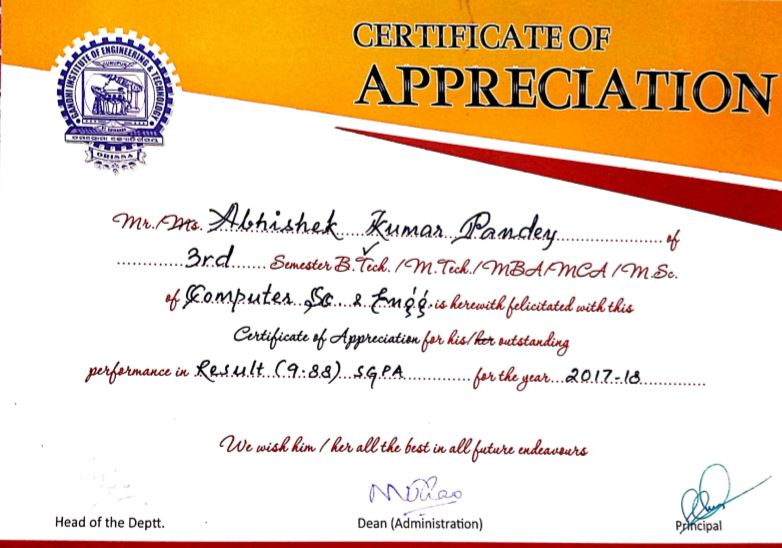 GANDHI INSTITUTE OF ENGINEERING & TECHNOLOGY
GUNUPUR
ORISSA
CERTIFICATE OF
APPRECIATION
Mr./Ms. Abhishek Kumar Pandey of
3rd Semester B.Tech./M.Tech./MBA/MCA/M.Sc.
of Computer Sc. & Engg. is herewith felicitated with this
Certificate of Appreciation for his/her outstanding
performance in Result (9.88) SGPA for the year 2017-18
We wish him / her all the best in all future endeavours
Head of the Deptt.
Dean (Administration)
Principal